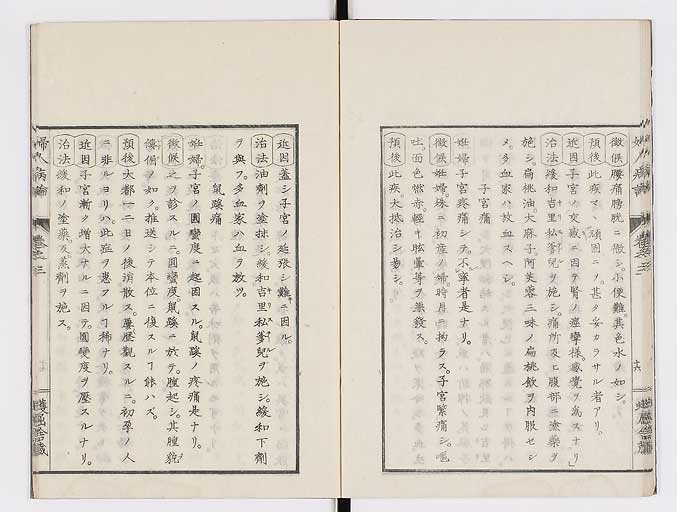 徴候腰痛膀胱ニ徹シ。小便難。其色水ノ如シ。
預後此疾マヽ頑固ニメ。甚タ妄カラサル者アリ。
近因子宮ノ交感ニ因テ腎ノ痙攣様。感覚ヲ為スナリ
治法緩和吉里私爹児ヲ施シ。痛所及ヒ腹部ニ塗薬ヲ
施シ。扁桃油。大麻子。阿芙蓉三味ノ扁桃飲ヲ内服セシ
メ。多血家ハ放血スヘシ。
子宮痛
妊婦子宮疼痛シテ。不寧者是ナリ。
徴候妊婦殊ニ初産ノ婦。時月ニ拘ラス。子宮緊痛シ。嘔
吐。面色㿠赤軽キ眩暈等ヲ兼發ス。
預後此疾。大抵治シ易シ。
近因蓋シ子宮ノ延張シ難キニ因ル。
治法油劑ヲ塗抹シ。緩和吉里私爹児ヲ施シ。緩和下劑
ヲ與フ。多血家ハ血ヲ放ツ。
鼠蹊痛
妊婦。子宮ノ圓蠻度ニ起因スル。鼠蹊ノ疼痛是ナリ。
徴候之ヲ診スルニ。圓蠻度。鼠蹊ニ於テ。腫起シ。其腫貌
僂儞ノ如ク。推送シテ本位ニ復スルヿ能ハズ。
預後大都一二日ノ後消散ス。屢歴觀スルニ。初孕ノ人
ニ非ルヨリハ。此症ヲ患フルヿ稀ナリ。
近因子宮漸ク増大ナルニ因テ。圓蠻度ヲ壓スルナリ。
治法緩和ノ塗藥。及蒸劑ヲ施ス。
婦人病論